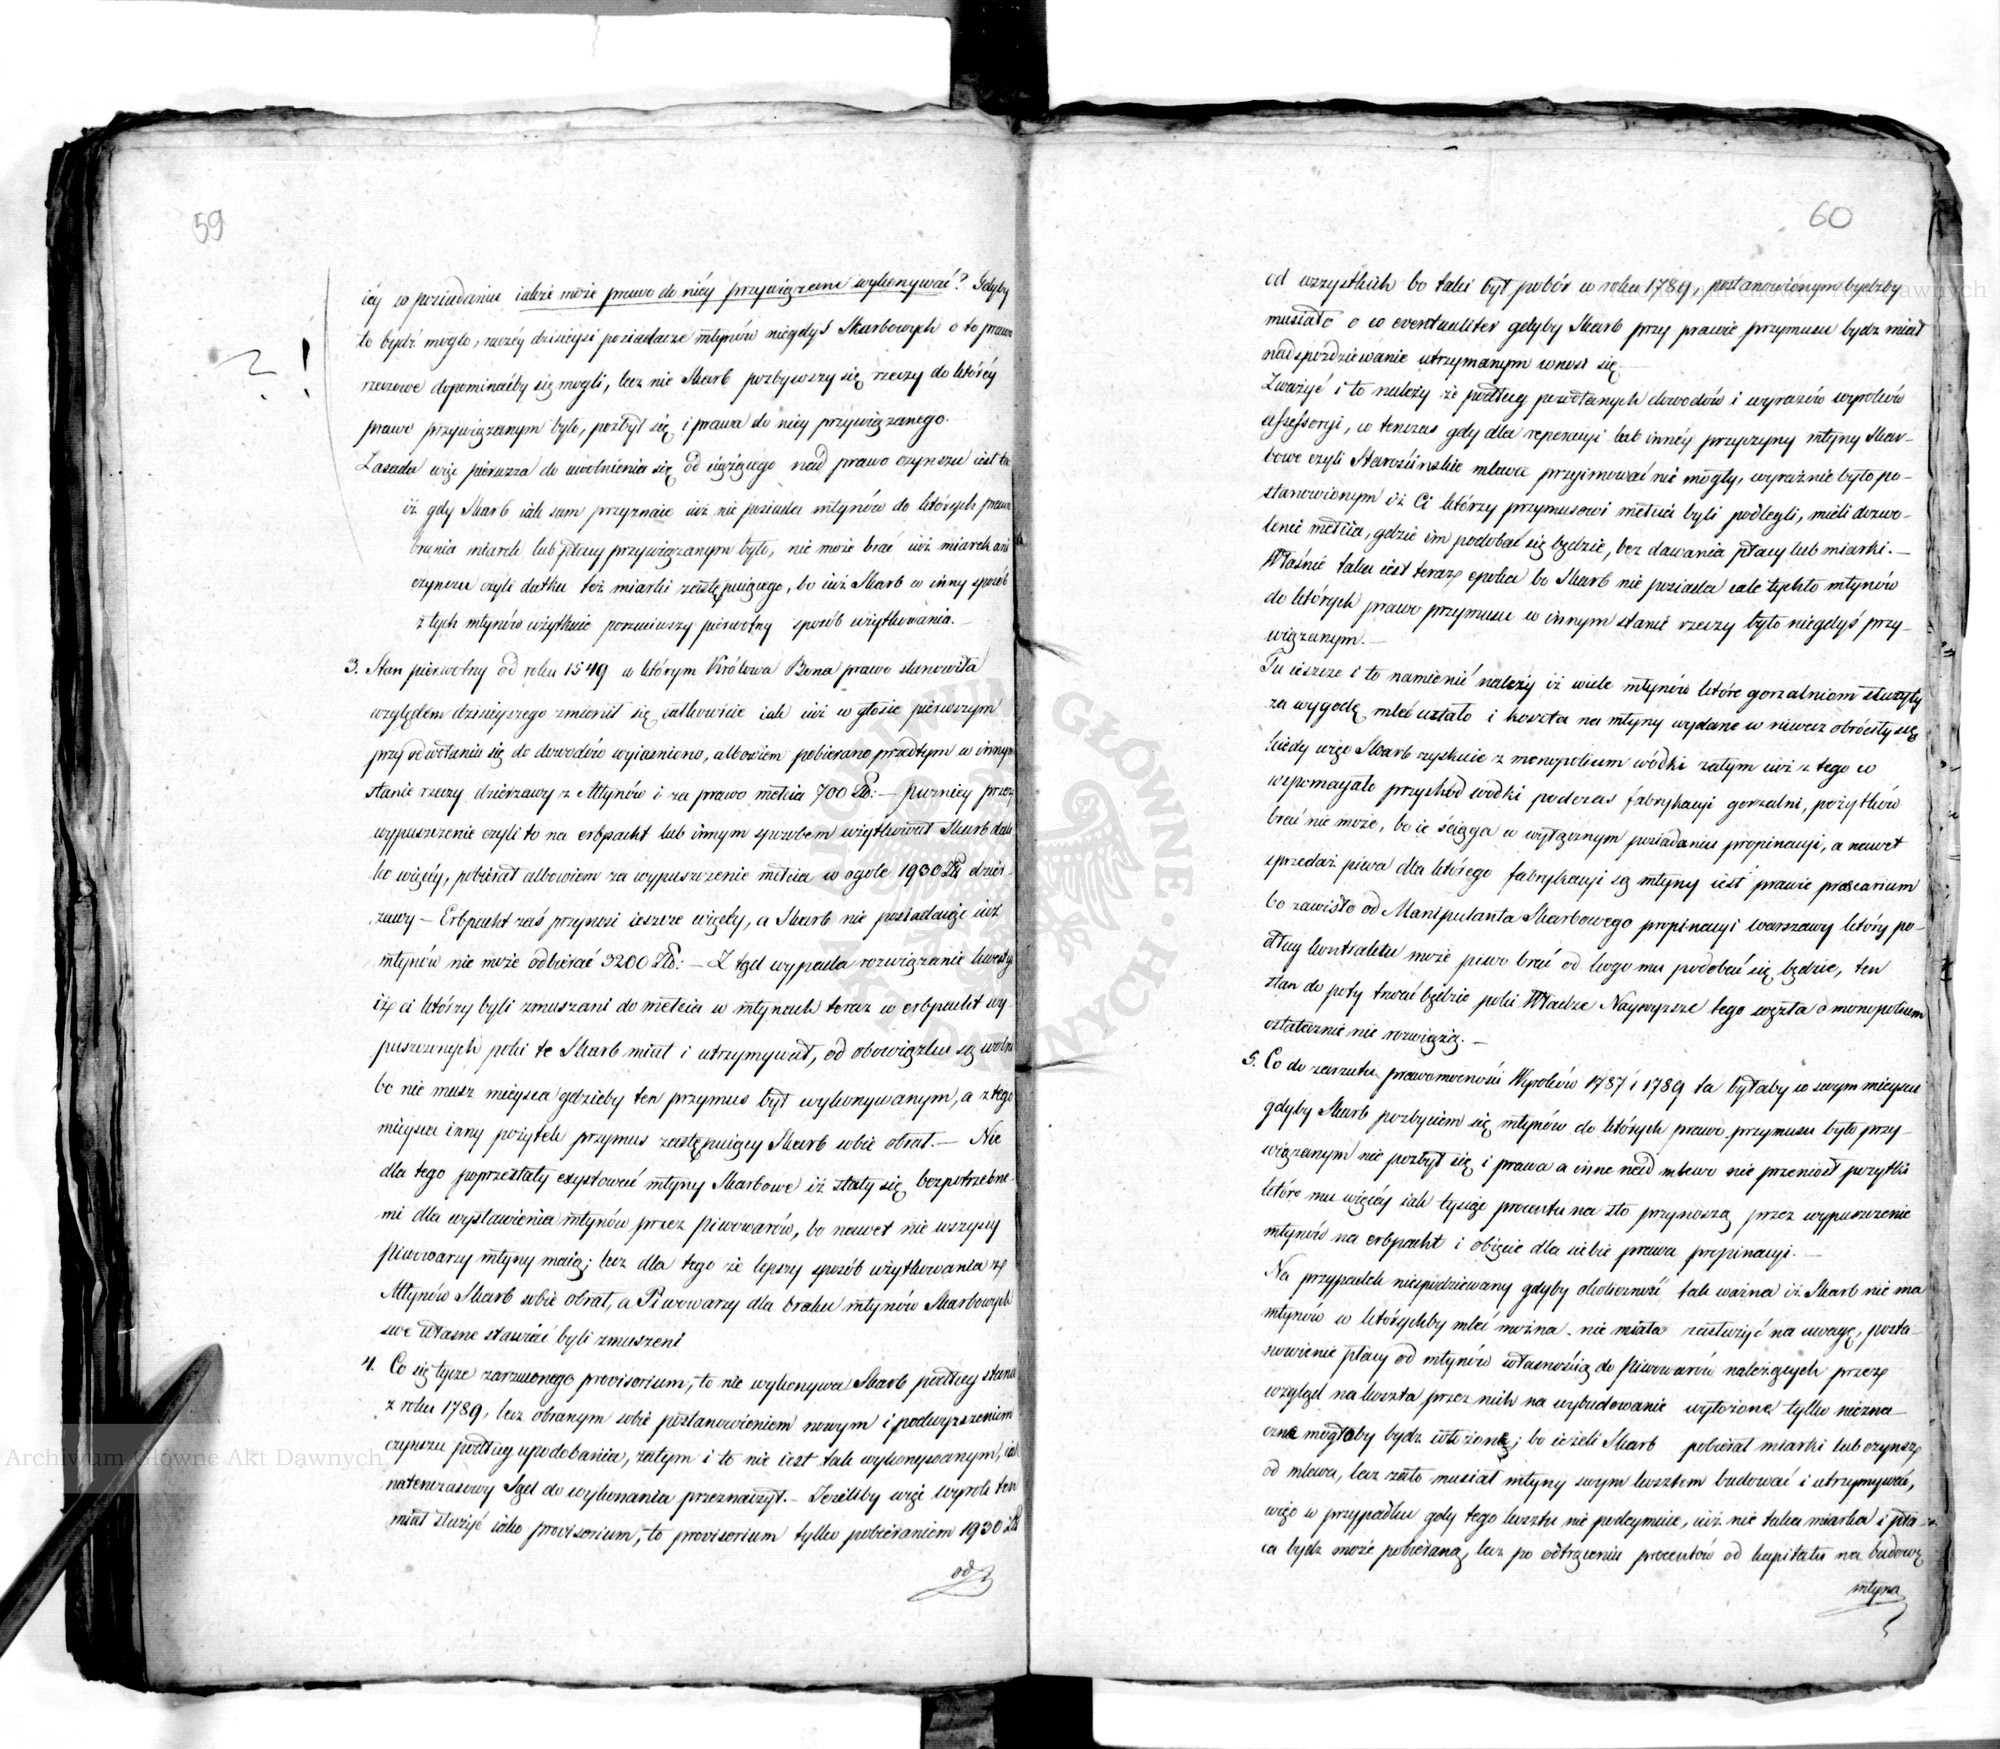 59
iéy w posiadaniu iakże może prawo do niéy przywiązane wykonywać? Gdyby
to bydź mogło, raczéy dzisieysi posiadacze młynów niegdyś Skarbowych o to prawo
rzeczowe dopominaćby się mogli, lecz nie Skarb pozbywszy się rzeczy do któréy
prawo przywiązanym było, pozbył się i prawa do niey przywiązanego.
? !
Zasada więc pierwsza do uwolnienia się od ciążącego nad prawo czynszu iest ta
iż gdy Skarb iak sam przyznaie iuż nie posiada młynów do których prawo
brania miarek lub płacy przywiązanym było, nie może brać iuż miarek ani
czynszu czyli datku też miarki zastępuiącego, bo iuż Skarb w inny sposób
z tych młynów użytkuie porzuciwszy pierwotny sposób użytkowania. —
3. Stan pierwotny od roku 1549 w którym Królowa Bona prawo stanowiła
względem dzisieyszego zmienił się całkowicie iak iuż w głosie pierwszym
przy odwołaniu się do dowodów wyiaśniono, albowiem pobierano przedtym w innym
stanie rzeczy dzierżawy z Młynów i za prawo mełcia 700 Zł: — puzniey przez
wypuszczenie czyli to na erbpacht lub innym sposobem użytkował Skarb dale-
ko więcéy, pobierał albowiem za wypuszczenie mełcia w ogole 1930 Zł dzier-
żawy — Erbpacht zaś przynosi ieszcze więcéy, a Skarb nie posiadaiąc iuż
młynów nie może odbierać 3200 Zł: — Z tąd wypada rozwiązanie kwestyi
iż ci którzy byli zmuszani do mełcia w młynach teraz w erbpacht wy-
puszczonych poki te Skarb miał i utrzymywał, od obowiązku są wolni
bo nie masz mieysca gdzieby ten przymus był wykonywanym, a z tego
mieysca inny pożytek przymus zastępuiący Skarb sobie obrał. — Nie
dla tego poprzestały exystować młyny Skarbowe iż stały się bezpotrzebne-
mi dla wystawienia młynów przez piwowarów, bo nawet nie wszyscy
piwowarzy młyny maią; lecz dla tego że lepszy sposób użytkowania z
Młynów Skarb sobie obrał, a Piwowarzy dla braku młynów Skarbowych
swe własne stawiać byli zmuszeni
4. Co się tycze zarzuconego provisorium, to nie wykonywa Skarb podług stanu
z roku 1789, lecz obranym sobie postanowieniem nowym i podwyższeniem
czynszu podług upodobania, zatym i to nie iest tak wykonywanym, iak
natenczasowy Sąd do wykonania przeznaczył. — Jeżeliby więc wyrok ten
miał służyć iako provisorium, to provisorium tylko pobieraniem 1930 Zł
od
60
od wszystkich bo taki był pobór w roku 1789, postanowionym bydźby
musiało o co eventualiter gdyby Skarb przy prawie przymusu bydź miał
nadspodziewanie utrzymanym wnosi się. —
Zważyć i to należy że podług powołanych dowodów i wyrazów wyroków
assessoryi, w tenczas gdy dla reperacyi lub innéy przyczyny młyny Skar-
bowe czyli Starościńskie mlewa przyimować nie mogły, wyraźnie było po-
stanowionym iż Ci którzy przymusowi mełcia byli podlegli, mieli dozwo-
lenie mełcia, gdzie im podobać się będzie, bez dawania płacy lub miarki. —
Właśnie taka iest teraz epoka bo Skarb nie posiada cale tychto młynów
do których prawo przymusu w innym stanie rzeczy było niegdyś przy-
wiązanym. —
Tu ieszcze i to namienić należy iż wiele młynów które gorzalniom służyły
za wygodę mleć ustało i koszta na młyny wydane w niwecz obróciły się
kiedy więc Skarb zyskuie z monopolium wódki zatym iuż z tego co
wspomagało przychód wodki podczas fabrykacyi gorzalni, pożytków
brać nie może, bo ie ściąga w wyłącznym posiadaniu propinacyi, a nawet
sprzedaż piwa dla którego fabrykacyi są młyny iest prawie precarium
bo zawisło od Manipulanta Skarbowego propinacyi warszawy który po-
dług kontraktu może piwo brać od kogo mu podobać się będzie, ten
stan do poty trwać będzie poki Władze Naywyższe tego węzła o monopolium
ostatecznie nie rozwiążą. —
5. Co do zarzutu prawomocności Wyroków 1787 i 1789 ta byłaby w swym mieyscu
gdyby Skarb pozbyciem się młynów do których prawo przymusu było przy-
wiązanym nie pozbył się i prawa a inne nad mlewo nie przeniosł pożytki
które mu więcéy iak tysiąc procentu na sto przynoszą przez wypuszczenie
młynów na erbpacht i obięcie dla siebie prawa propinacyi. —
Na przypadek niespodziewany gdyby okoliczność tak ważna iż Skarb nie ma
młynów w którychby mleć można nie miała zasłużyć na uwagę, posta-
nowienie płacy od młynów własnością do piwowarów należących przez
wzgląd na koszta przez nich na wybudowanie wyłożone tylko niezna-
czna mogłaby bydz włożoną; bo ieżeli Skarb pobierał miarki lub czynsz
od mlewa, lecz zato musiał młyny swym kosztem budować i utrzymywać,
więc w przypadku gdy tego kosztu nie podeymuie, iuż nie taka miarka i pła-
ca bydz może pobieraną, lecz po odtrąceniu procentów od kapitału na budowę
młyna